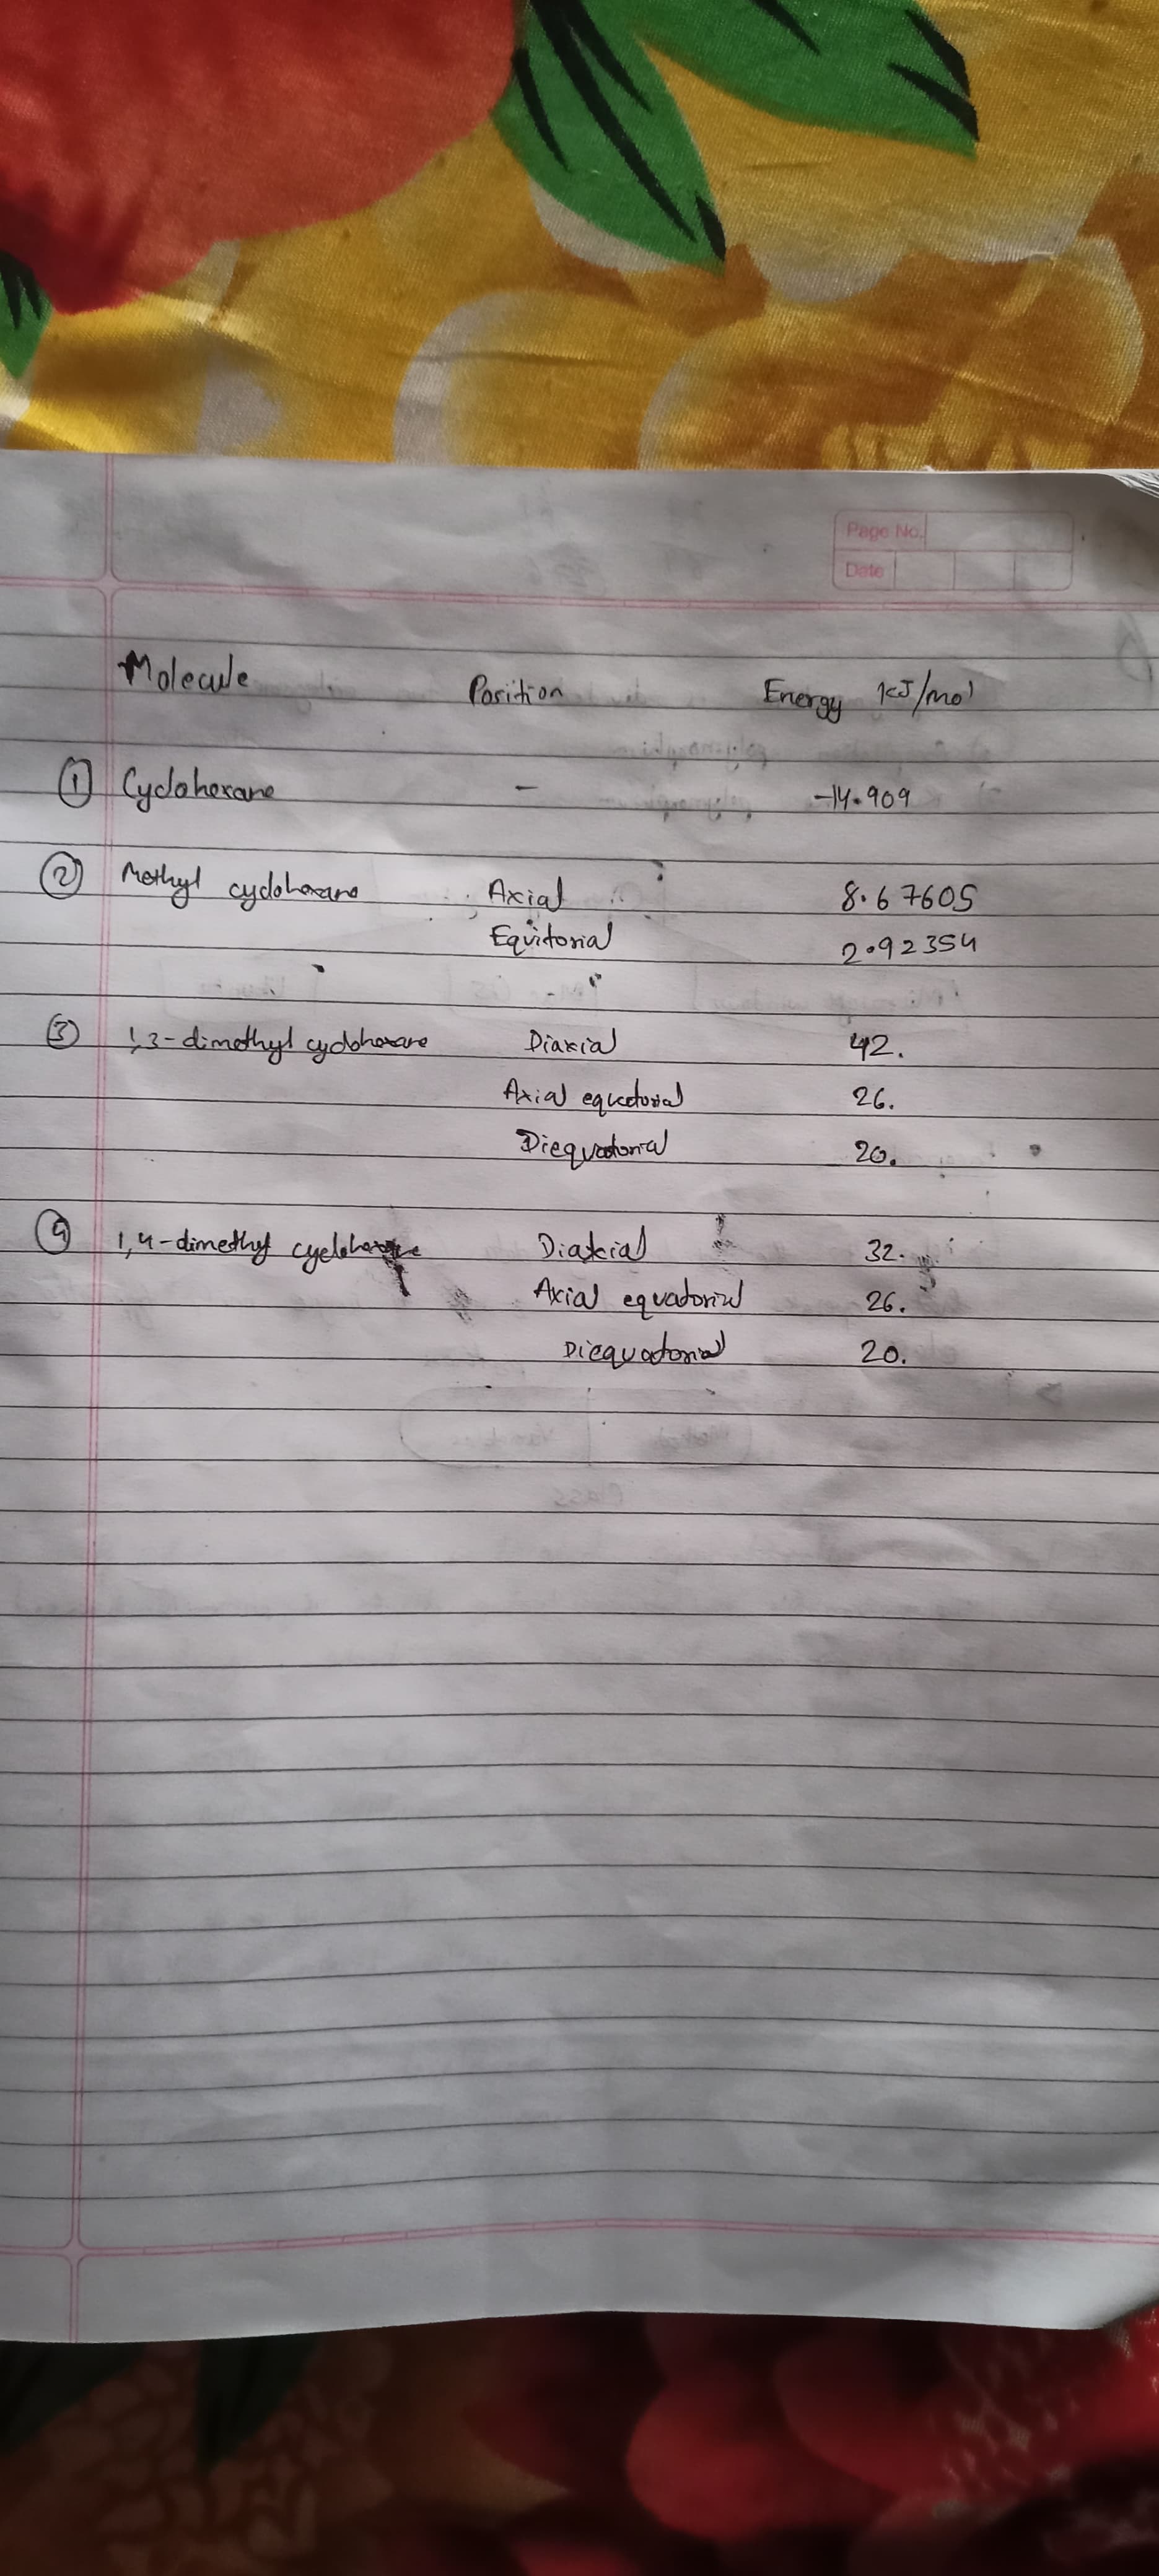 Page No.
Date
Molecule Position Energy kJ/mol
① Cyclohexane - -14.909
② Methyl cyclohexane Axial 8.67605
Equitorial 2.92354
③ 1,3-dimethyl cyclohexane Diaxial 42.
Axial equatorial 26.
Diequatorial 20.
④ 1,4-dimethyl cyclohexane Diaxial 32.
Axial equatorial 26.
Diequatorial 20.